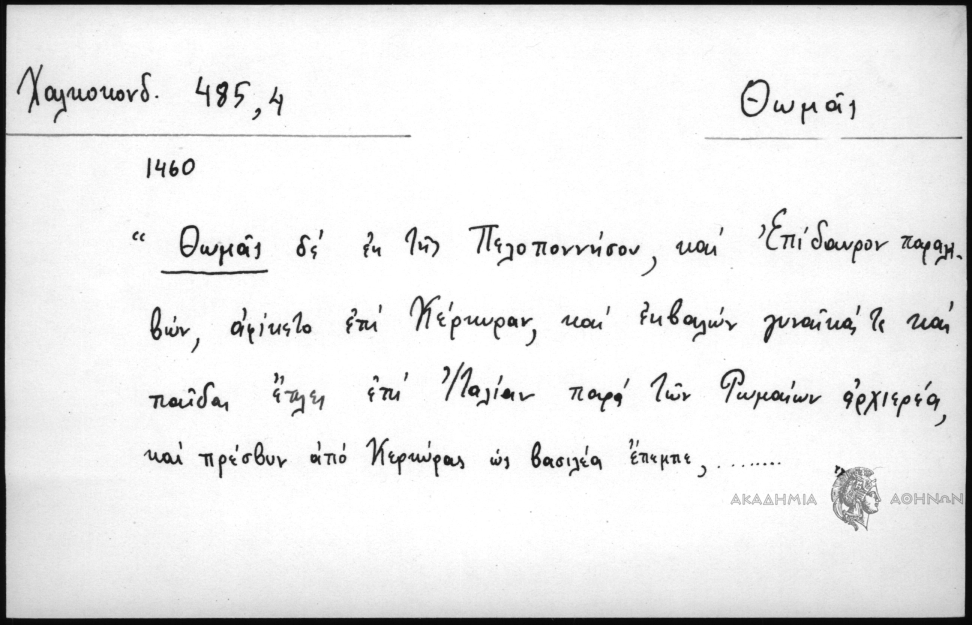 Χαλκοκονδ. 485,4
Θωμᾶς
1460
“ Θωμᾶς δέ ἐκ τῆς Πελοποννήσου, καί Ἐπίδαυρον παραλα-
βών, ἀφίκετο ἐπί Κέρκυραν, καί ἐκβαλών γυναῖκά τε καί
παῖδας ἔπλει ἐπί Ἰταλίαν παρά τῶν Ρωμαίων ἀρχιερέα,
καί πρέσβυν ἀπό Κερκύρας ὡς βασιλέα ἔπεμπε, ........
ΑΚΑΔΗΜΙΑ ΑΘΗΝΩΝ